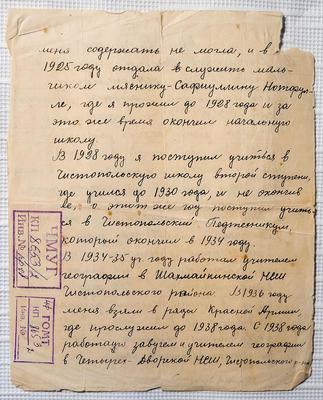 меня содержать не могла, и в
1925 году отдала в служить маль-
чиком мяснику-Сафиуллину Нотфул-
ле, где я прожил до 1928 года и за
это же время окончил начальную
школу
В 1928 году я поступил учиться в
Чистопольскую школу второй ступени,
где учился до 1930 года, и не окончив
ее, в этот же год поступил учить-
ся в Чистопольский Педтехникум,
который окончил в 1934 году.
В 1934-35 уг. году работал учителем
географии в Шахмайкинской НСШ
Чистопольского района В 1936 году
меня взяли в ряды Красной Армии,
где прослужил до 1938 года. С 1938 года
работаю завучем и учителем географии
в Четырех-Дворской НСШ, Чистопольского р-на
ЧМУТ
КП
Инв. №
ГОМТ
КП
Инв. №